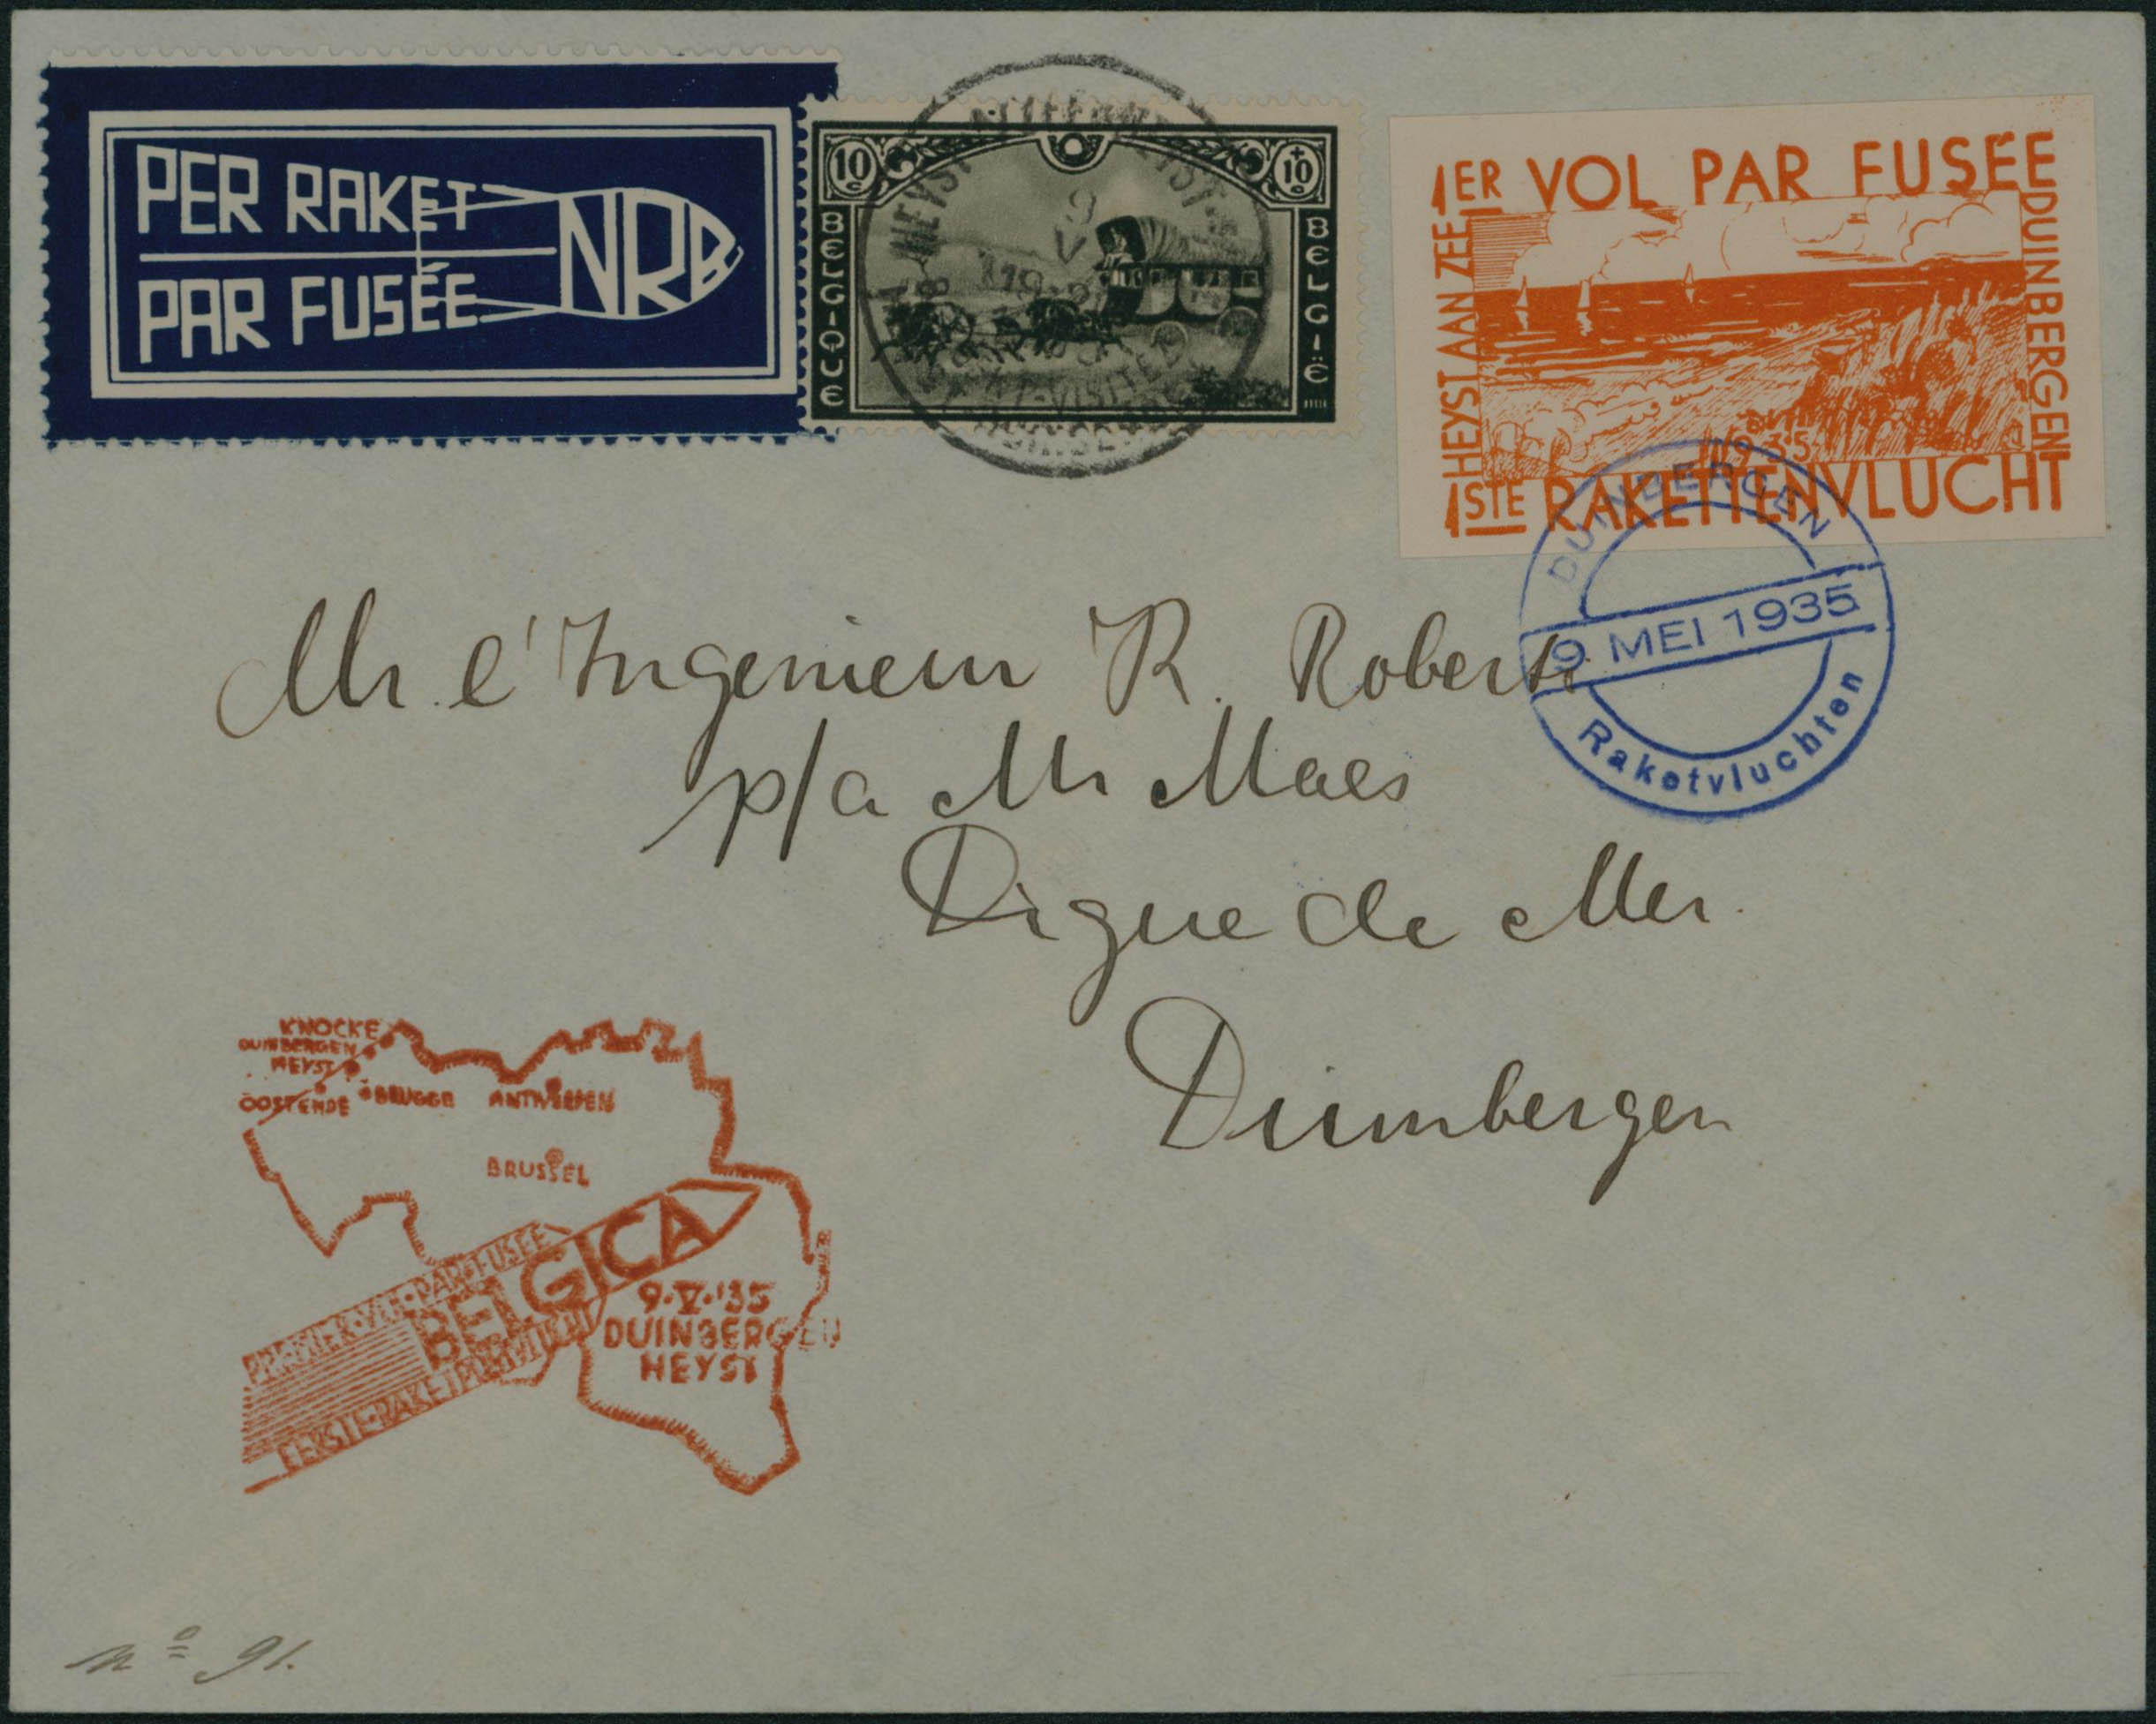 PER RAKET
PAR FUSÉE
NRB
10c
10c
+
BELGIQUE
BELGIË
HEYST
9
V
1ER VOL PAR FUSÉE
HEYST AAN ZEE
DUINBERGEN
19.3.5.
1STE RAKETTENVLUCHT
DUINBERGEN
9 MEI 1935
Raketvluchten
Mr. l'Ingenieur R. Roberti
p/a Mr Maes
Digue de Mer.
Duinbergen
KNOCKE
DUINBERGEN
HEYST
OOSTENDE
BRUGGE
ANTWERPEN
BRUSSEL
PAR-FUSÉE
BELGICA
EERSTE-RAKETPOSTVLUCHT
9.V.'35
DUINBERGEN
HEYST
No 91.